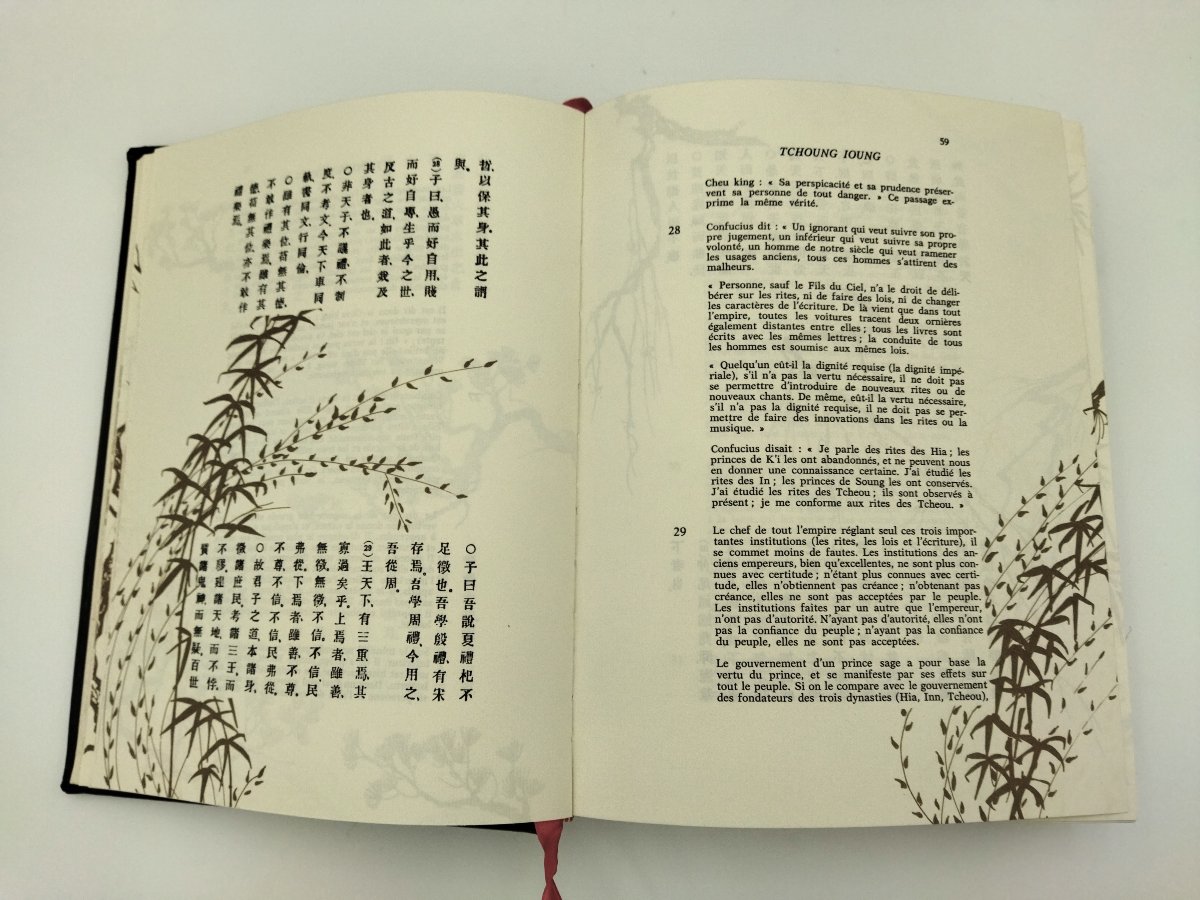 哲、以保其身。其此之謂
與。
(28)子曰、愚而好自用、賤
而好自專、生乎今之世、
反古之道、如此者、烖及
其身者也。
○非天子、不議禮、不制
度、不考文。今天下車同
軌、書同文、行同倫。
○雖有其位、苟無其德、
不敢作禮樂焉。雖有其
德、苟無其位、亦不敢作
禮樂焉。
○子曰、吾說夏禮、杞不
足徵也。吾學殷禮、有宋
存焉。吾學周禮、今用之、
吾從周。
(29)王天下、有三重焉、其
寡過矣乎。上焉者、雖善、
無徵、無徵、不信、不信、民
弗從。下焉者、雖善、不尊、
不尊、不信、不信、民弗從。
○故君子之道、本諸身、
徵諸庶民、考諸三王、而
不謬、建諸天地、而不悖、
質諸鬼神、而無疑、百世
59
TCHOUNG IOUNG
Cheu king : « Sa perspicacité et sa prudence préser-
vent sa personne de tout danger. » Ce passage ex-
prime la même vérité.
28 Confucius dit : « Un ignorant qui veut suivre son pro-
pre jugement, un inférieur qui veut suivre sa propre
volonté, un homme de notre siècle qui veut ramener
les usages anciens, tous ces hommes s'attirent des
malheurs.
« Personne, sauf le Fils du Ciel, n'a le droit de déli-
bérer sur les rites, ni de faire des lois, ni de changer
les caractères de l'écriture. De là vient que dans tout
l'empire, toutes les voitures tracent deux ornières
également distantes entre elles ; tous les livres sont
écrits avec les mêmes lettres ; la conduite de tous
les hommes est soumise aux mêmes lois.
« Quelqu'un eût-il la dignité requise (la dignité impé-
riale), s'il n'a pas la vertu nécessaire, il ne doit pas
se permettre d'introduire de nouveaux rites ou de
nouveaux chants. De même, eût-il la vertu nécessaire,
s'il n'a pas la dignité requise, il ne doit pas se per-
mettre de faire des innovations dans les rites ou la
musique. »
Confucius disaît : « Je parle des rites des Hia ; les
princes de K'i les ont abandonnés, et ne peuvent nous
en donner une connaissance certaine. J'ai étudié les
rites des In ; les princes de Soung les ont conservés.
J'ai étudié les rites des Tcheou ; ils sont observés à
présent ; je me conforme aux rites des Tcheou. »
29 Le chef de tout l'empire réglant seul ces trois impor-
tantes institutions (les rites, les lois et l'écriture), il
se commet moins de fautes. Les institutions des an-
ciens empereurs, bien qu'excellentes, ne sont plus con-
nues avec certitude ; n'étant plus connues avec certi-
tude, elles n'obtiennent pas créance ; n'obtenant pas
créance, elles ne sont pas acceptées par le peuple.
Les institutions faites par un autre que l'empereur,
n'ont pas d'autorité. N'ayant pas d'autorité, elles n'ont
pas la confiance du peuple ; n'ayant pas la confiance
du peuple, elles ne sont pas acceptées.
Le gouvernement d'un prince sage a pour base la
vertu du prince, et se manifeste par ses effets sur
tout le peuple. Si on le compare avec le gouvernement
des fondateurs des trois dynasties (Hia, Inn, Tcheou),